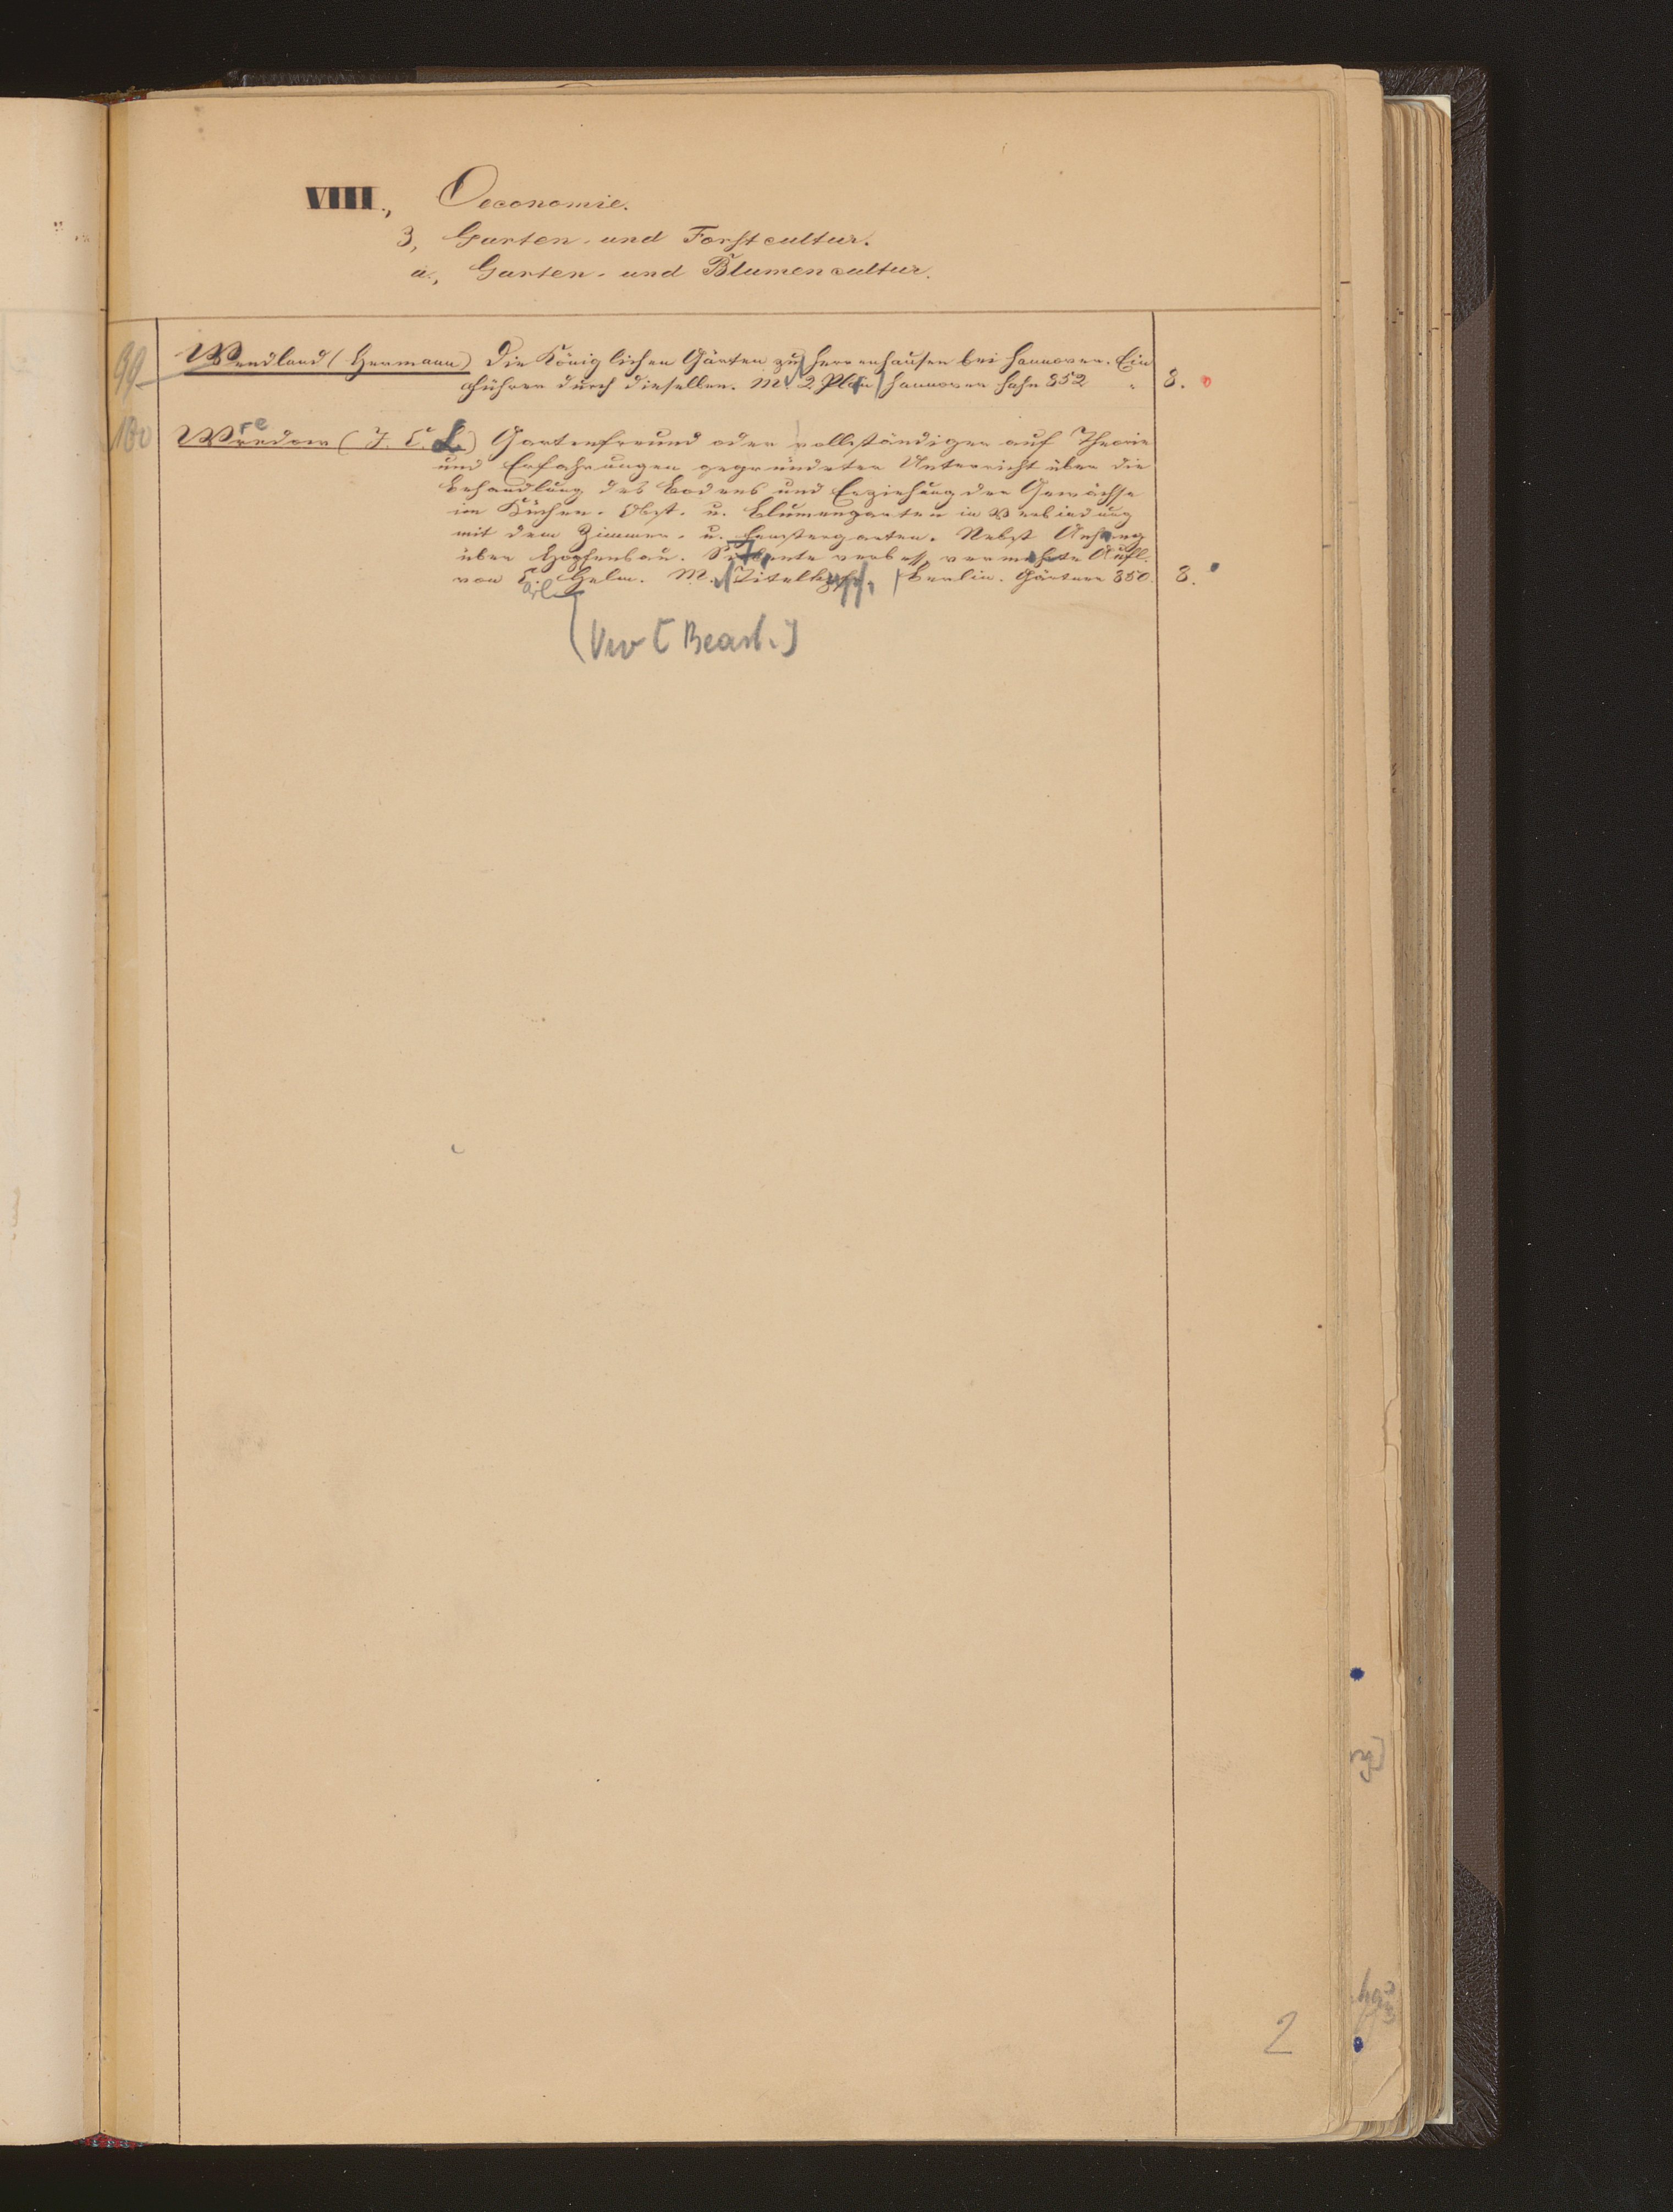 VIII., Oeconomie.
3, Garten- und Forstcultur.
a., Garten- und Blumencultur.
99 Wendland (Hermann) Die Königlichen Gärten zu Herrenhausen bei Hannover. Ein
Führer durch dieselben. M. 2 Plän Hannover Hahn 852 " 8.
100 Wredow (J. C. L.) Gartenfreund oder vollständiger auf Theorie
und Erfahrungen gegründeter Unterricht über die
Behandlung des Bodens und Erziehung der Gewächse
im Küchen- Obst- u. Blumengarten in Verbindung
mit dem Zimmer- u. Fenstergarten. Nebst Anhang
über Hopfenbau. Siebente verbess. vermehrte Aufl.
von C. Helm. M. Titelkupf. Berlin. Gärtner 850. 8.
arl
(Vw [Bearb.]
2